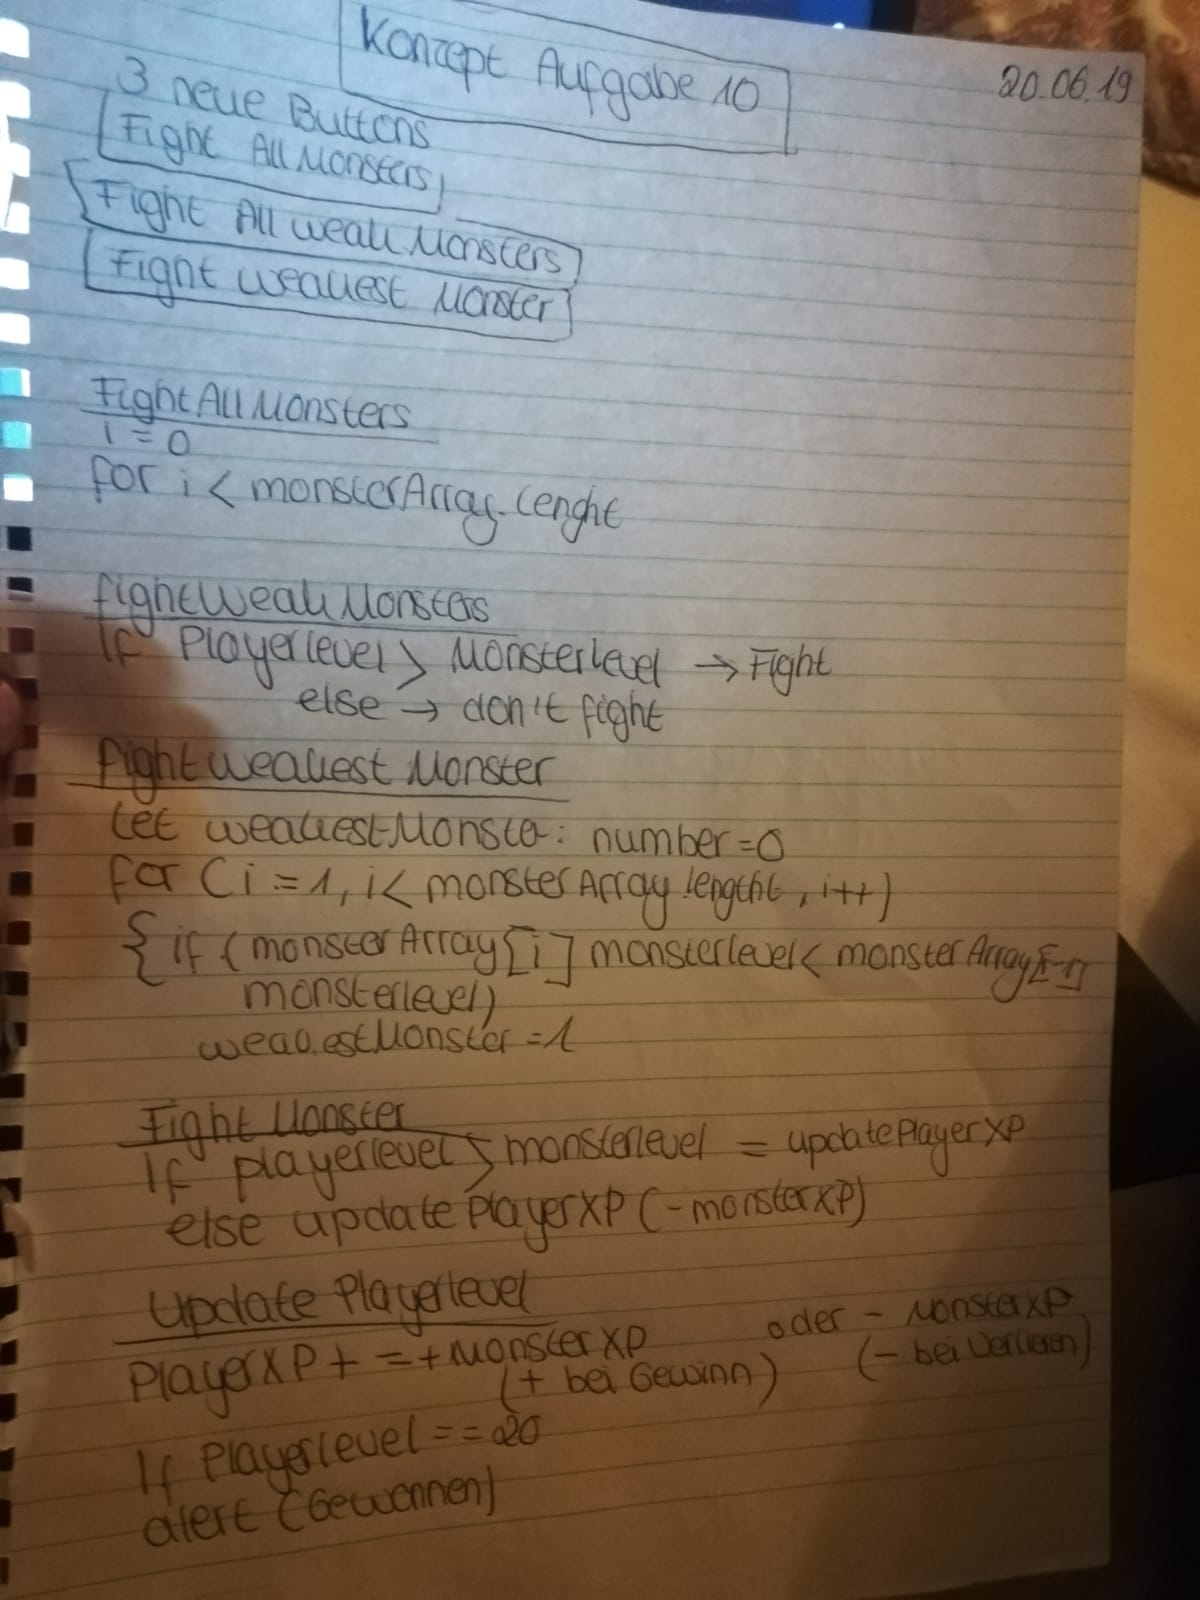 Konzept Aufgabe 10
20.06.19
3 neue Buttons
Fight All Monsters
Fight All weak Monsters
Fight weakest Monster
FightAllMonsters
i = 0
for i < monsterArray.lenght
fightWeakMonsters
If Playerlevel > Monsterlevel → Fight
else → don't fight
fightweakest Monster
let weakestMonster: number = 0
for (i = 1, i < monsterArray.length, i++)
{ if (monsterArray[i] monsterlevel < monsterArray[i-1]
monsterlevel)
weakestMonster = 1
Fight Monster
If playerlevel > monsterlevel = updatePlayerXP
else updatePlayerXP (-monsterXP)
Update Playerlevel
PlayerXP + = + MonsterXP oder - MonsterXP
(+ bei Gewinn) (- bei Verlieren)
If Playerlevel == 20
alert (Gewonnen)